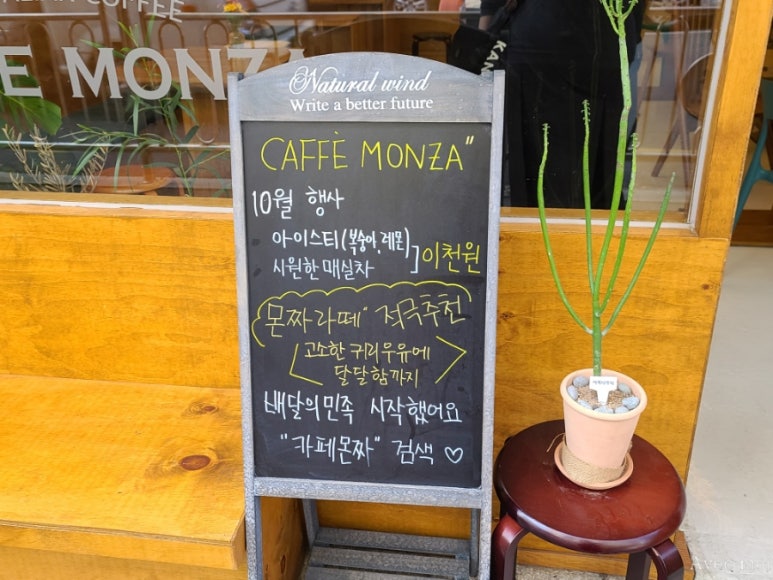 COFFEE
E MONZA
KAN
Natural wind
Write a better future
CAFFÈ MONZA"
10월 행사
아이스티(복숭아,레몬)
시원한매실차
]이천원
몬짜라떼" 적극추천
<고소한 귀리우유에
달달함까지>
배달의민족 시작했어요
"카페몬짜" 검색♡